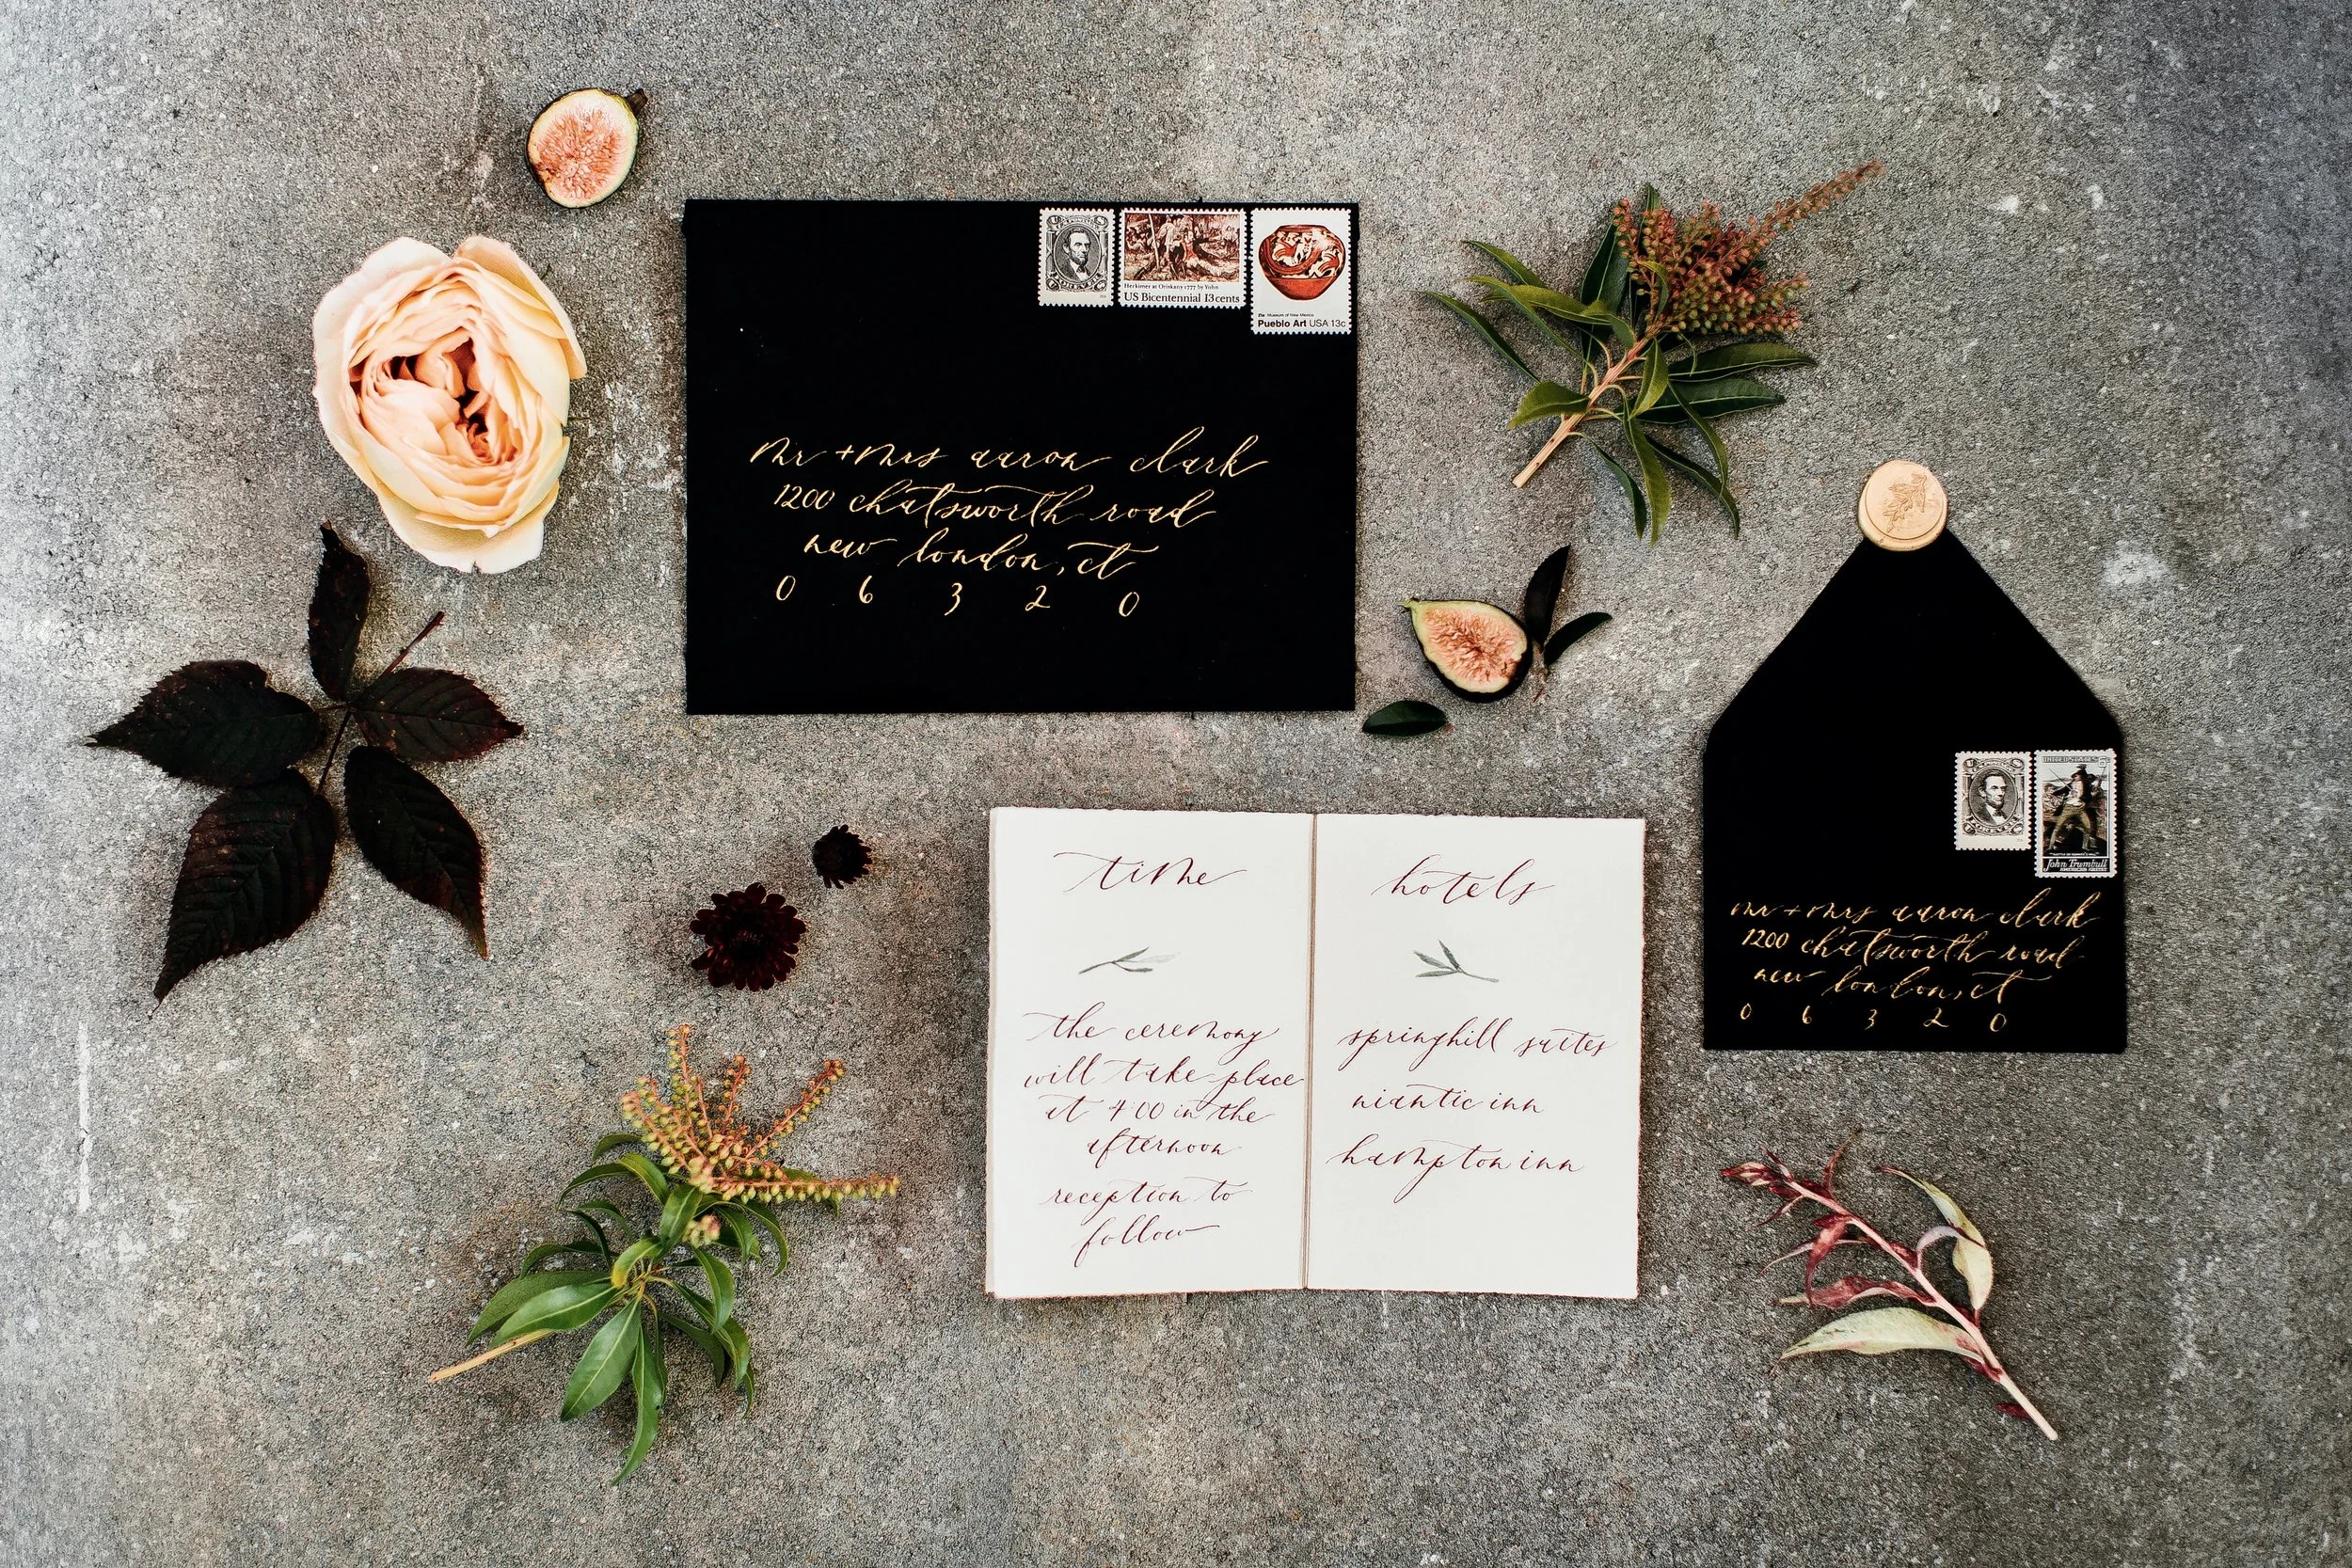 Herkimer at Oriskany 1777 by Yohn
US Bicentennial 13cents
Zia Museum of New Mexico
Pueblo Art USA 13c
mr + mrs aaron clark
1200 chatsworth road
new london, ct
0 6 3 2 0
John Trumbull
mr + mrs aaron clark
1200 chatsworth road
new london, ct
0 6 3 2 0
time
the ceremony
will take place
at 4:00 in the
afternoon
reception to
follow
hotels
springhill suites
niantic inn
hampton inn